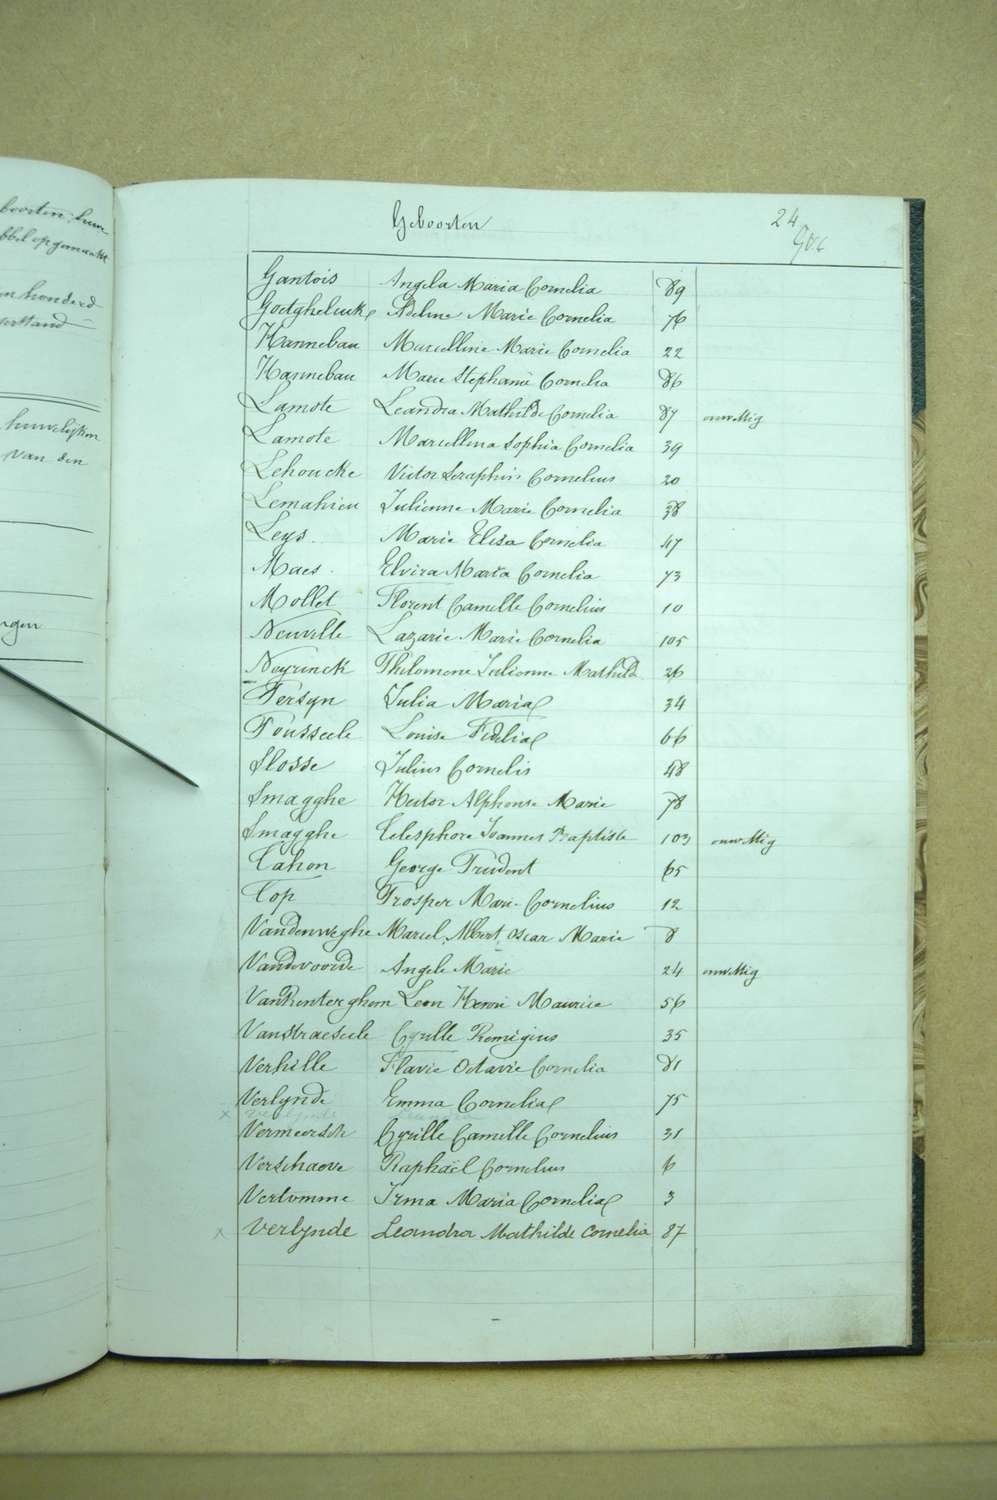 boorten, huw
bbel opgemaakt
honderd
huwelijken
van den
ngen
Geboorten
24
Gantois Angela Maria Cornelia 89
Goetgheluck Adeline Marie Cornelia 76
Hannebau Marcelline Marie Cornelia 22
Hannebau Marie Stephanie Cornelia 86
Lamote Leandra Mathilde Cornelia 87 onwettig
Lamote Marcellina Sophia Cornelia 39
Lehoucke Victor Seraphin Cornelius 20
Lemahieu Julienne Marie Cornelia 38
Leys. Marie Elisa Cornelia 47
Maes. Elvira Maria Cornelia 73
Mollet Florent Camille Cornelius 10
Neuville Lazarie Marie Cornelia 105
Neyrinck Philomene Julienne Mathild 26
Persyn Julia Maria 34
Pousseele Louise Fidelia 66
Slosse Julius Cornelis 48
Smagghe Hector Alphonse Marie 78
Smagghe Telesphore Joannes Baptiste 103 onwettig
Tahon George Prudent 65
Top Prosper Marie Cornelius 12
Vandenweghe Marcel Albert Oscar Marie 8
Vandevoorde Angele Marie 24 onwettig
VanRenterghem Leon Henri Maurice 56
Vanstraeseele Cyrille Remigius 35
Verhille Flavie Octavie Cornelia 81
Verlynde Emma Cornelia 75
Vermeersch Cyrille Camille Cornelius 31
Verschaeve Raphaël Cornelius 6
Verlomme Irma Maria Cornelia 3
x Verlynde Leandra Mathilde Cornelia 87